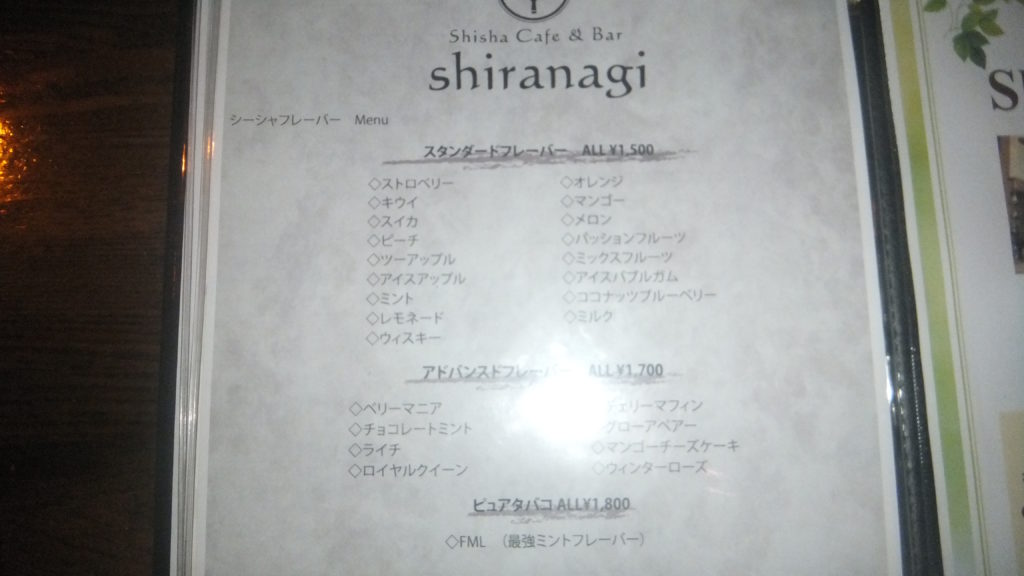 Shisha Cafe & Bar
shiranagi
シーシャフレーバー Menu
スタンダードフレーバー ALL ¥1,500
◇ストロベリー ◇オレンジ
◇キウイ ◇マンゴー
◇スイカ ◇メロン
◇ピーチ ◇パッションフルーツ
◇ツーアップル ◇ミックスフルーツ
◇アイスアップル ◇アイスバブルガム
◇ミント ◇ココナッツブルーベリー
◇レモネード ◇ミルク
◇ウィスキー
アドバンスドフレーバー ALL ¥1,700
◇ベリーマニア チェリーマフィン
◇チョコレートミント グローアペアー
◇ライチ ◇マンゴーチーズケーキ
◇ロイヤルクイーン ◇ウィンターローズ
ピュアタバコ ALL¥1,800
◇FML （最強ミントフレーバー）